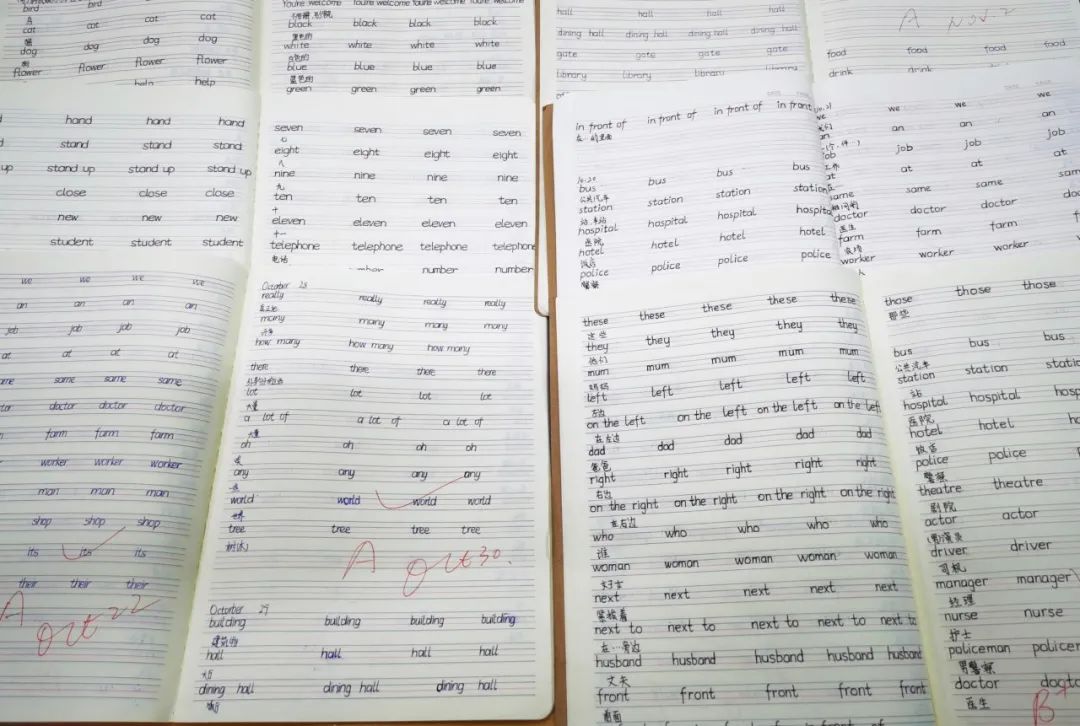 bird bird
鸟 cat cat
cat
猫 dog dog
dog
狗 flower flower flower
flower
help help
You're welcome You're welcome You're welcome
black black black black
黑色的
white white white white
白色的
blue blue blue blue
蓝色的
green green green green
hall hall hall hall
dining hall dining hall dining hall dining hall
gate gate gate gate
library library library library
A Nov 2
food food food food
drink drink
hand hand hand
stand stand stand
up stand up stand up stand up
close close close
new new new
student student student
seven seven seven seven
七
eight eight eight eight
八
nine nine nine nine
九
ten ten ten ten
十
eleven eleven eleven eleven
十一
telephone telephone telephone telephone
电话
number number
in front of in front of in front of in front
在…的里面
10.20
bus bus bus bus
公共汽车
station station station station
站.车站
hospital hospital hospital hospital
医院
hotel hotel hotel hotel
饭店
police police police police
警察
we we we
we
我们
an an an
an
job job job
job
工作
at at at
at
same same same same
相同的
doctor doctor doctor doctor
医生
farm farm farm farm
农场
worker worker worker worker
人
we we we we
an an an an
job job job job
at at at at
same same same
doctor doctor doctor
farm farm farm
worker worker worker
man man man
shop shop shop
its its its
their their their
A Oct 22
October 23
really really really really
many many many many
许多
how many how many how many
there there there there
lot lot lot lot
大量
a lot of a lot of a lot of
大量
oh oh oh oh
any any any any
world world world world
世界
tree tree tree tree
树木
A Oct 30.
Octorber 29
building building building building
建筑物
hall hall hall hall
大厅
dining hall dining hall dining hall
these these these these
这些
they they they they
他们
mum mum mum mum
妈妈
left left left left
左边
on the left on the left on the left on the left
在左边
dad dad dad dad
爸爸
right right right right
右边
on the right on the right on the right on the right
在右边
who who who who
谁
woman woman woman woman
女子
next next next next
紧接着
next to next to next to next to next to
在…旁边
husband husband husband husband husband
丈夫
front front front front front
前面
in front of
those those those
那些
bus bus bus
公共汽车
station station static
站
hospital hospital hospital
医院
hotel hotel hotel
饭店
police police
警察
theatre theatre
剧院
actor actor
(男)演员
driver driver
司机
manager manager
经理
nurse nurse
护士
policeman policem
男警察
doctor doctor
医生
B+